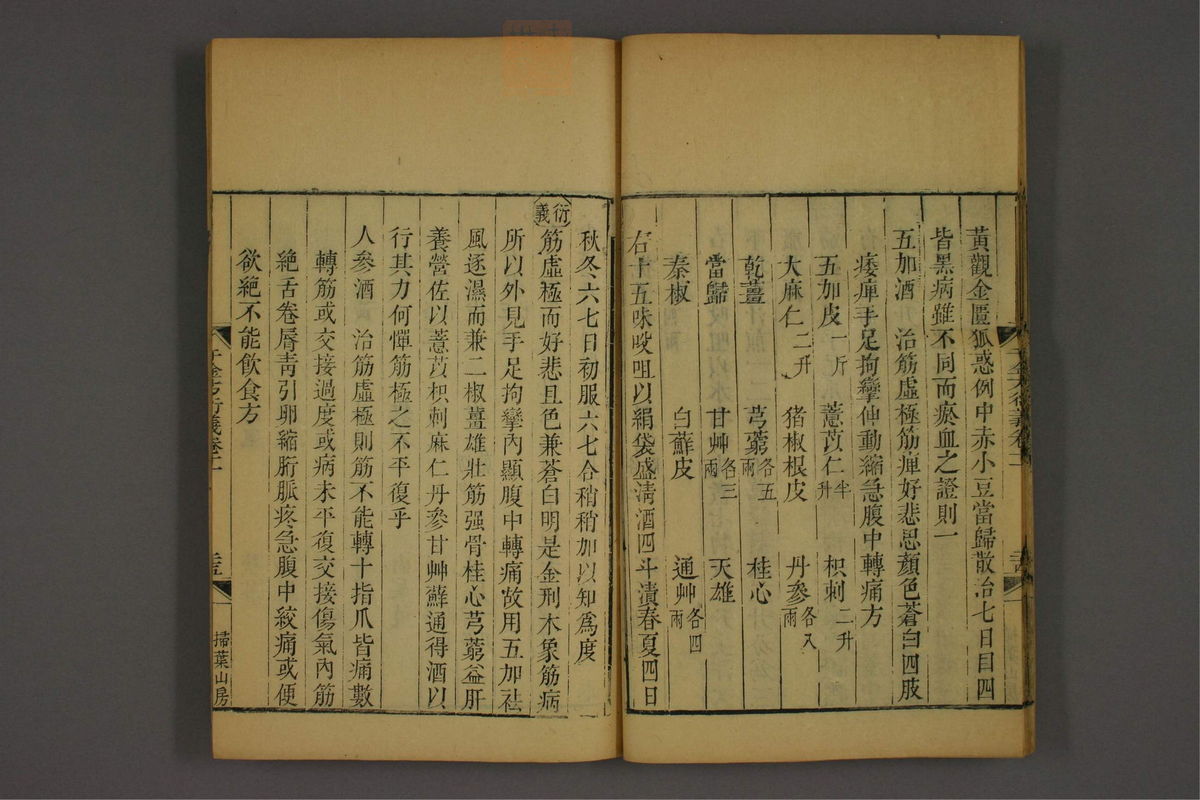 黃觀金匱狐惑例中赤小豆當歸散治七日目四
皆黑病雖不同而瘀血之證則一
五加酒　治筋虛極筋痺好悲思顏色蒼白四肢
痿痺手足拘攣伸動縮急腹中轉痛方
五加皮一斤　薏苡仁半升　枳刺二升
大麻仁二升　猪椒根皮　丹參各八兩
乾薑　芎藭各五兩　桂心
當歸　甘艸各三兩　天雄
秦椒　白蘚皮　通艸各四兩
右十五味㕮咀以絹袋盛清酒四斗漬春夏四日
千金方衍義卷十一
秋冬六七日初服六七合稍稍加以知爲度
衍義
筋虛極而好悲且色兼蒼白明是金刑木象筋病
所以外見手足拘攣內顯腹中轉痛故用五加祛
風逐濕而兼二椒薑雄壯筋强骨桂心芎藭益肝
養營佐以薏苡枳刺麻仁丹參甘艸蘚通得酒以
行其力何憚筋極之不平復乎
人參酒　治筋虛極則筋不能轉十指爪皆痛數
轉筋或交接過度或病未平復交接傷氣內筋
絕舌卷唇靑引卵縮䯒脈疼急腹中絞痛或便
欲絕不能飮食方
千金方衍義卷十一
掃葉山房